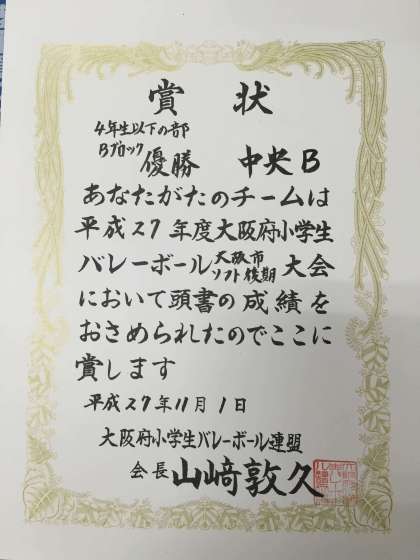 賞状
4年生以下の部
Bブロック
優勝 中央B
あなたがたのチームは
平成27年度大阪府小学生
バレーボール大阪市ソフト後期大会
において頭書の成績を
おさめられたのでここに
賞します
平成27年11月1日
大阪府小学生バレーボール連盟
会長 山﨑敦久